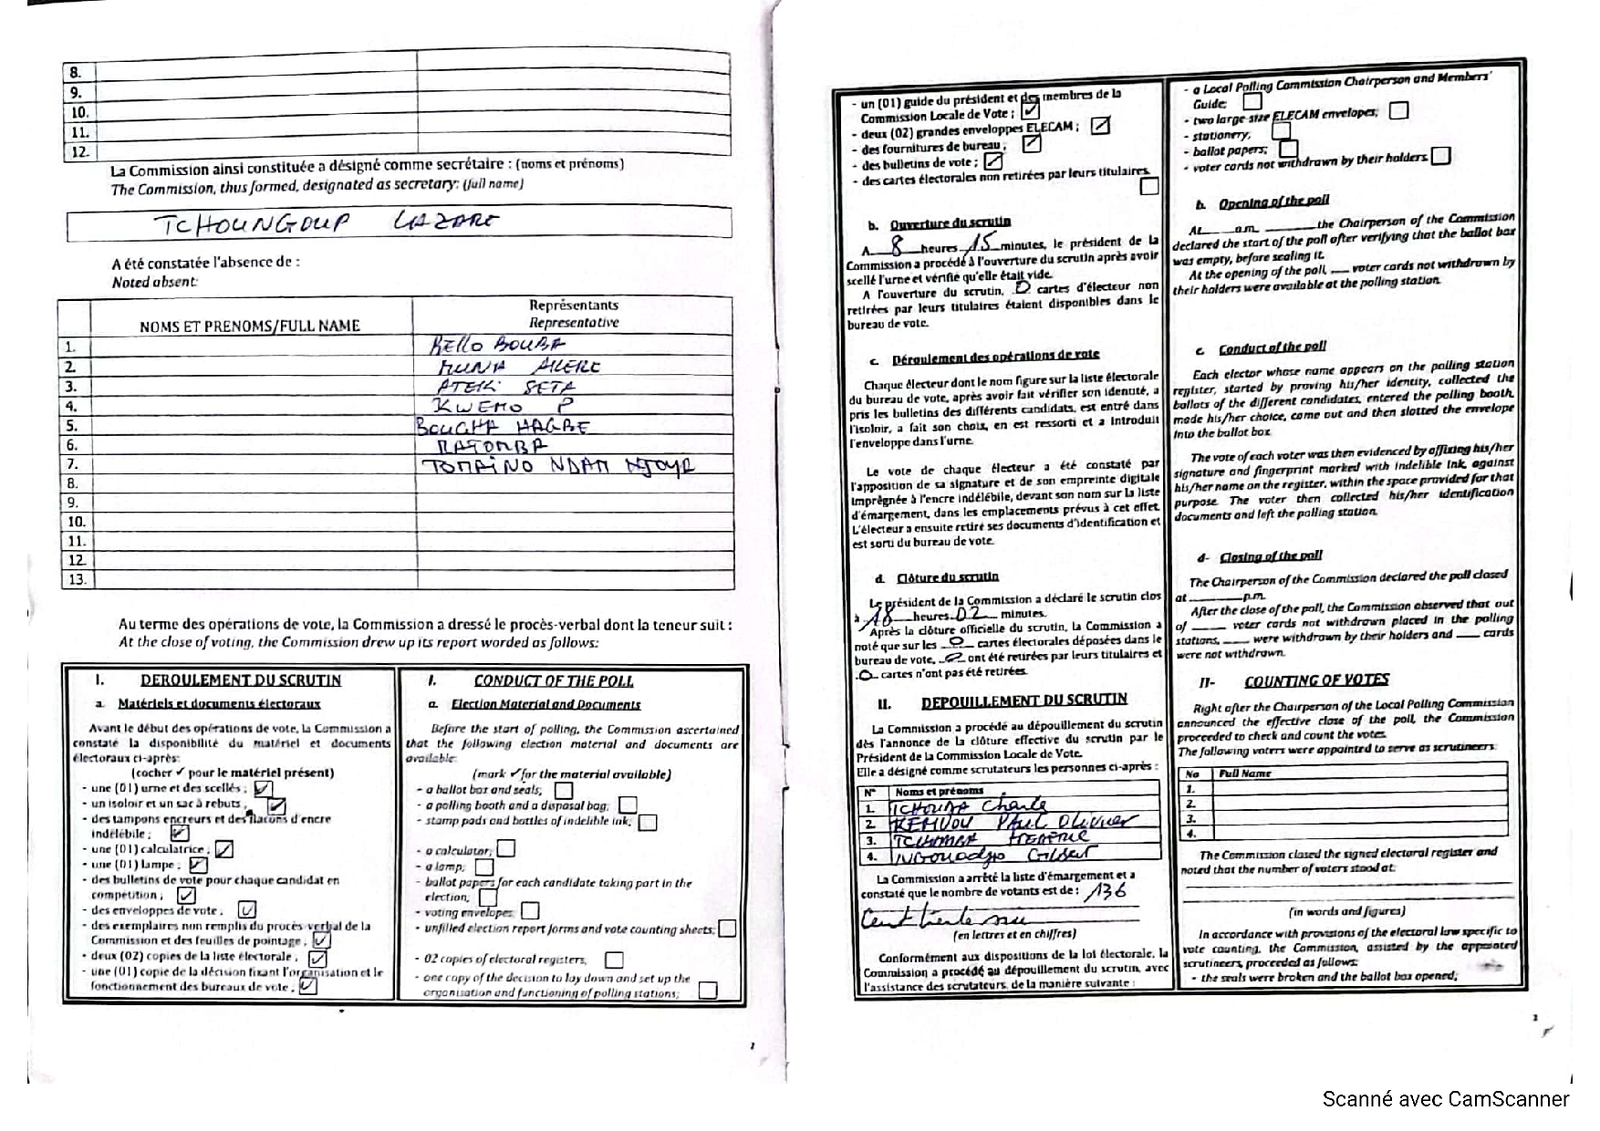 8.
9.
10.
11.
12.
La Commission ainsi constituée a désigné comme secrétaire : (noms et prénoms)
The Commission, thus formed, designated as secretary: (full name)
TCHOUNGOUP LAZARE
A été constatée l'absence de :
Noted absent:
NOMS ET PRENOMS/FULL NAME
Représentants
Representative
1. BELLO BOUBA
2. MUNA AKERE
3. ATEKI SETA
4. KWEMO P
5. BOUGHA HAGBE
6. MATOMBA
7. TOMAINO NDAM NJOYA
8.
9.
10.
11.
12.
13.
Au terme des opérations de vote, la Commission a dressé le procès-verbal dont la teneur suit :
At the close of voting, the Commission drew up its report worded as follows:
I. DEROULEMENT DU SCRUTIN
a. Matériels et documents électoraux
Avant le début des opérations de vote, la Commission a
constaté la disponibilité du matériel et documents
électoraux ci-après:
(cocher ✓ pour le matériel présent)
- une (01) urne et des scellés ; ✓
- un isoloir et un sac à rebuts ; ✓
- des tampons encreurs et des flacons d'encre
indélébile ; ✓
- une (01) calculatrice ; ✓
- une (01) lampe ; ✓
- des bulletins de vote pour chaque candidat en
compétition ; ✓
- des enveloppes de vote ; ✓
- des exemplaires non remplis du procès verbal de la
Commission et des feuilles de pointage ; ✓
- deux (02) copies de la liste électorale ; ✓
- une (01) copie de la décision fixant l'organisation et le
fonctionnement des bureaux de vote ; ✓
I. CONDUCT OF THE POLL
a. Election Material and Documents
Before the start of polling, the Commission ascertained
that the following election material and documents are
available:
(mark ✓ for the material available)
- a ballot box and seals;
- a polling booth and a disposal bag;
- stamp pads and bottles of indelible ink;
- a calculator;
- a lamp;
- ballot papers for each candidate taking part in the
election;
- voting envelopes;
- unfilled election report forms and vote counting sheets;
- 02 copies of electoral registers;
- one copy of the decision to lay down and set up the
organisation and functioning of polling stations;
2
- un (01) guide du président et des membres de la
Commission Locale de Vote ; ✓
- deux (02) grandes enveloppes ELECAM ; ✓
- des fournitures de bureau ; ✓
- des bulletins de vote ; ✓
- des cartes électorales non retirées par leurs titulaires
b. Ouverture du scrutin
A 8 heures 15 minutes, le président de la
Commission a procédé à l'ouverture du scrutin après avoir
scellé l'urne et vérifié qu'elle était vide.
A l'ouverture du scrutin, 0 cartes d'électeur non
retirées par leurs titulaires étaient disponibles dans le
bureau de vote.
c. Déroulement des opérations de vote
Chaque électeur dont le nom figure sur la liste électorale
du bureau de vote, après avoir fait vérifier son identité, a
pris les bulletins des différents candidats, est entré dans
l'isoloir, a fait son choix, en est ressorti et a introduit
l'enveloppe dans l'urne.
Le vote de chaque électeur a été constaté par
l'apposition de sa signature et de son empreinte digitale
imprégnée à l'encre indélébile, devant son nom sur la liste
d'émargement, dans les emplacements prévus à cet effet.
L'électeur a ensuite retiré ses documents d'identification et
est sorti du bureau de vote.
d. Clôture du scrutin
Le président de la Commission a déclaré le scrutin clos
à 18 heures 02 minutes.
Après la clôture officielle du scrutin, la Commission a
noté que sur les 0 cartes électorales déposées dans le
bureau de vote, 0 ont été retirées par leurs titulaires et
0 cartes n'ont pas été retirées.
II. DEPOUILLEMENT DU SCRUTIN
La Commission a procédé au dépouillement du scrutin
dès l'annonce de la clôture effective du scrutin par le
Président de la Commission Locale de Vote.
Elle a désigné comme scrutateurs les personnes ci-après :
N° Noms et prénoms
1. TCHOUNA Charle
2. KEMVOU Paul Olivier
3. TCHOMBA
4. NGOUADJO Gilbert
La Commission a arrêté la liste d'émargement et a
constaté que le nombre de votants est de : 136
Cent trente six
(en lettres et en chiffres)
Conformément aux dispositions de la loi électorale, la
Commission a procédé au dépouillement du scrutin, avec
l'assistance des scrutateurs, de la manière suivante :
- a Local Polling Commission Chairperson and Members'
Guide;
- two large-size ELECAM envelopes;
- stationery;
- ballot papers;
- voter cards not withdrawn by their holders
b. Opening of the poll
At a.m. the Chairperson of the Commission
declared the start of the poll after verifying that the ballot box
was empty, before sealing it.
At the opening of the poll, voter cards not withdrawn by
their holders were available at the polling station.
c. Conduct of the poll
Each elector whose name appears on the polling station
register, started by proving his/her identity, collected the
ballots of the different candidates, entered the polling booth,
made his/her choice, came out and then slotted the envelope
into the ballot box.
The vote of each voter was then evidenced by affixing his/her
signature and fingerprint marked with indelible ink, against
his/her name on the register, within the space provided for that
purpose. The voter then collected his/her identification
documents and left the polling station.
d- Closing of the poll
The Chairperson of the Commission declared the poll closed
at p.m.
After the close of the poll, the Commission observed that out
of voter cards not withdrawn placed in the polling
stations, were withdrawn by their holders and cards
were not withdrawn.
II- COUNTING OF VOTES
Right after the Chairperson of the Local Polling Commission
announced the effective close of the poll, the Commission
proceeded to check and count the votes.
The following voters were appointed to serve as scrutineers:
No Full Name
1.
2.
3.
4.
The Commission closed the signed electoral register and
noted that the number of voters stood at:
(in words and figures)
In accordance with provisions of the electoral law specific to
vote counting, the Commission, assisted by the appointed
scrutineers, proceeded as follows:
- the seals were broken and the ballot box opened;
3
Scanné avec CamScanner